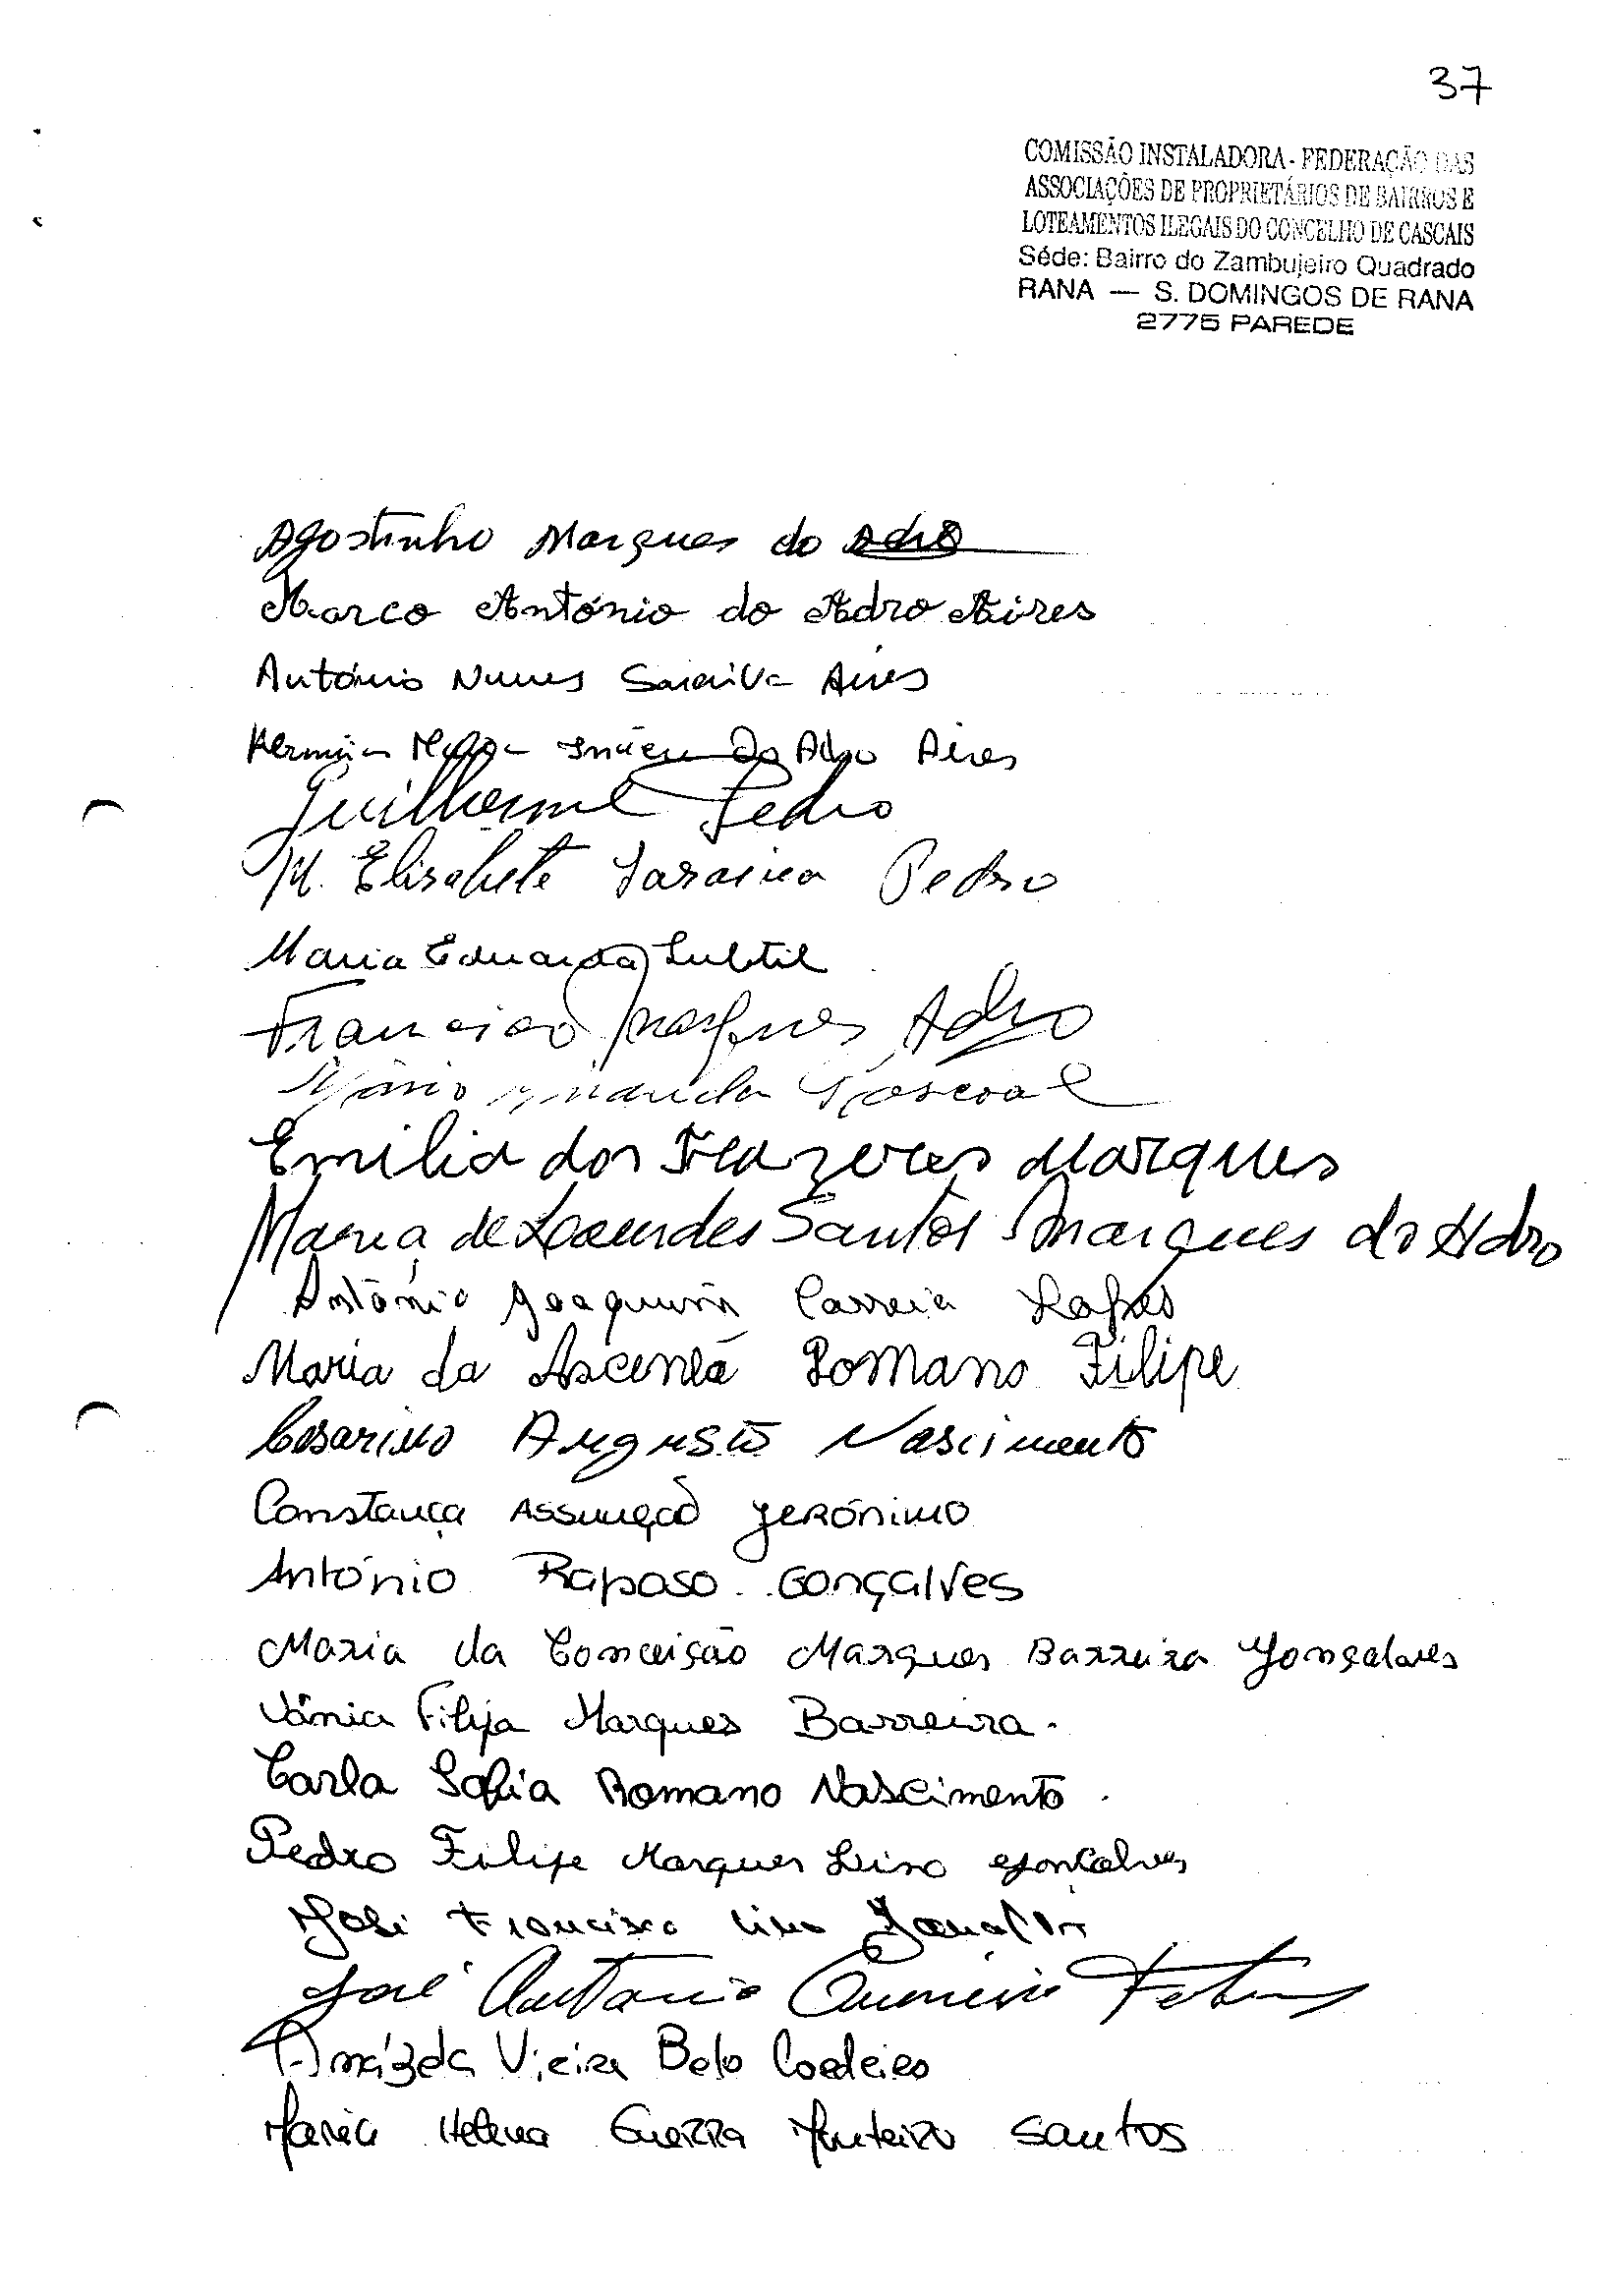 37
COMISSÃO INSTALADORA - FEDERAÇÃO DAS
ASSOCIAÇÕES DE PROPRIETÁRIOS DE BAIRROS E
LOTEAMENTOS ILEGAIS DO CONCELHO DE CASCAIS
Séde: Bairro do Zambujeiro Quadrado
RANA — S. DOMINGOS DE RANA
2775 PAREDE
Agostinho Marques do Adro
Marco António do Adro Aires
António Nunes Saraiva Aires
do Adro Aires
Guilherme Pedro
M. Elisabete Saraiva Pedro
Maria Eduarda Subtil
Francisco Marques Adro
Mário Miranda Pascoal
Emilia dos Prazeres Marques
Maria de Lourdes Santos Marques do Adro
António Joaquim Correia Lopes
Maria da Ascençã Romano Filipe
Cesarino Augusto Nascimento
Constança Assunção Jerónimo
António Raposo Gonçalves
Maria da Conceição Marques Barreira Gonçalves
Vânia Filipa Marques Barreira.
Carla Sofia Romano Nascimento.
Pedro Filipe Marques Lino Gonçalves
José Francisco Lino Gonçalves
José António
Vieira Belo Cordeiro
Maria Helena Guerra Monteiro Santos